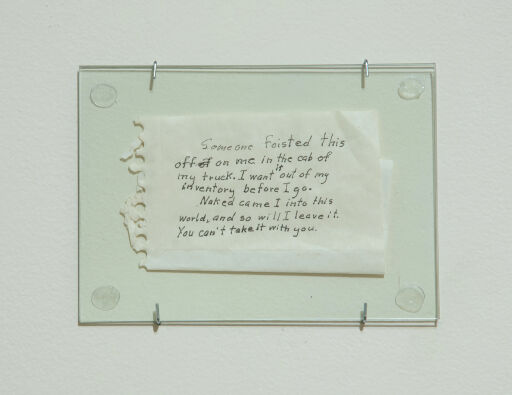 Someone foisted this
off on me in the cab of
my truck. I want it out of my
inventory before I go.
Naked came I into this
world, and so will I leave it.
You can't take it with you.